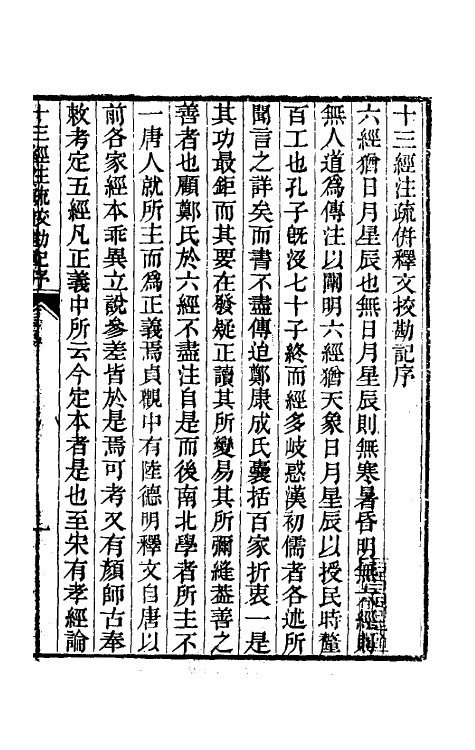 十三經注疏併釋文挍勘記序
六經猶日月星辰也無日月星辰則無寒暑昏明無六經則
無人道爲傳注以闡明六經猶天象日月星辰以授民時釐
百工也孔子旣沒七十子終而經多岐惑漢初儒者各述所
聞言之詳矣而書不盡傳迨鄭康成氏囊括百家折衷一是
其功最鉅而其要在發疑正讀其所變易其所彌縫葢善之
善者也顧鄭氏於六經不盡注自是而後南北學者所主不
一唐人就所主而爲正義焉貞觀中有陸德明釋文自唐以
前各家經本乖異立說參差皆於是焉可考又有顏師古奉
敕考定五經凡正義中所云今定本者是也至宋有孝經論
十三經注疏挍勘記序